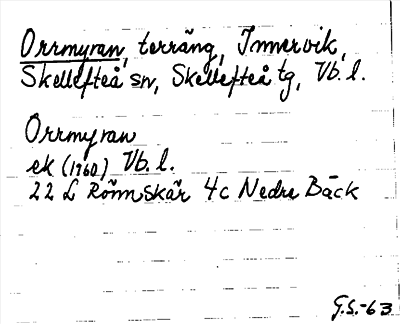 Orrmyran, terräng, Innervik,
Skellefteå sn, Skellefteå tg, Vb. l.
Orrmyran
ek (1960) Vb. l.
22 L Rönnskär 4c Nedre Bäck
G.S.-63